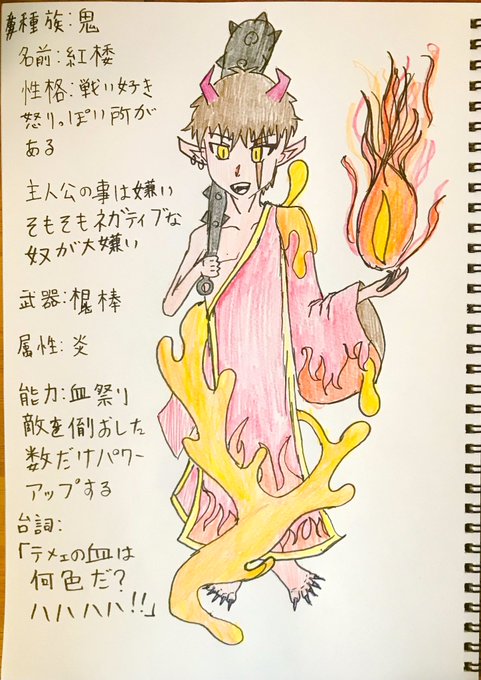 種族:鬼
名前:紅桜
性格:戦い好き
怒りっぽい所が
ある
主人公の事は嫌い
そもそもネガティブな
奴が大嫌い
武器:棍棒
属性:炎
能力:血祭り
敵を倒おした
数だけパワー
アップする
台詞:
「テメェの血は
何色だ?
ハハハハ!!」